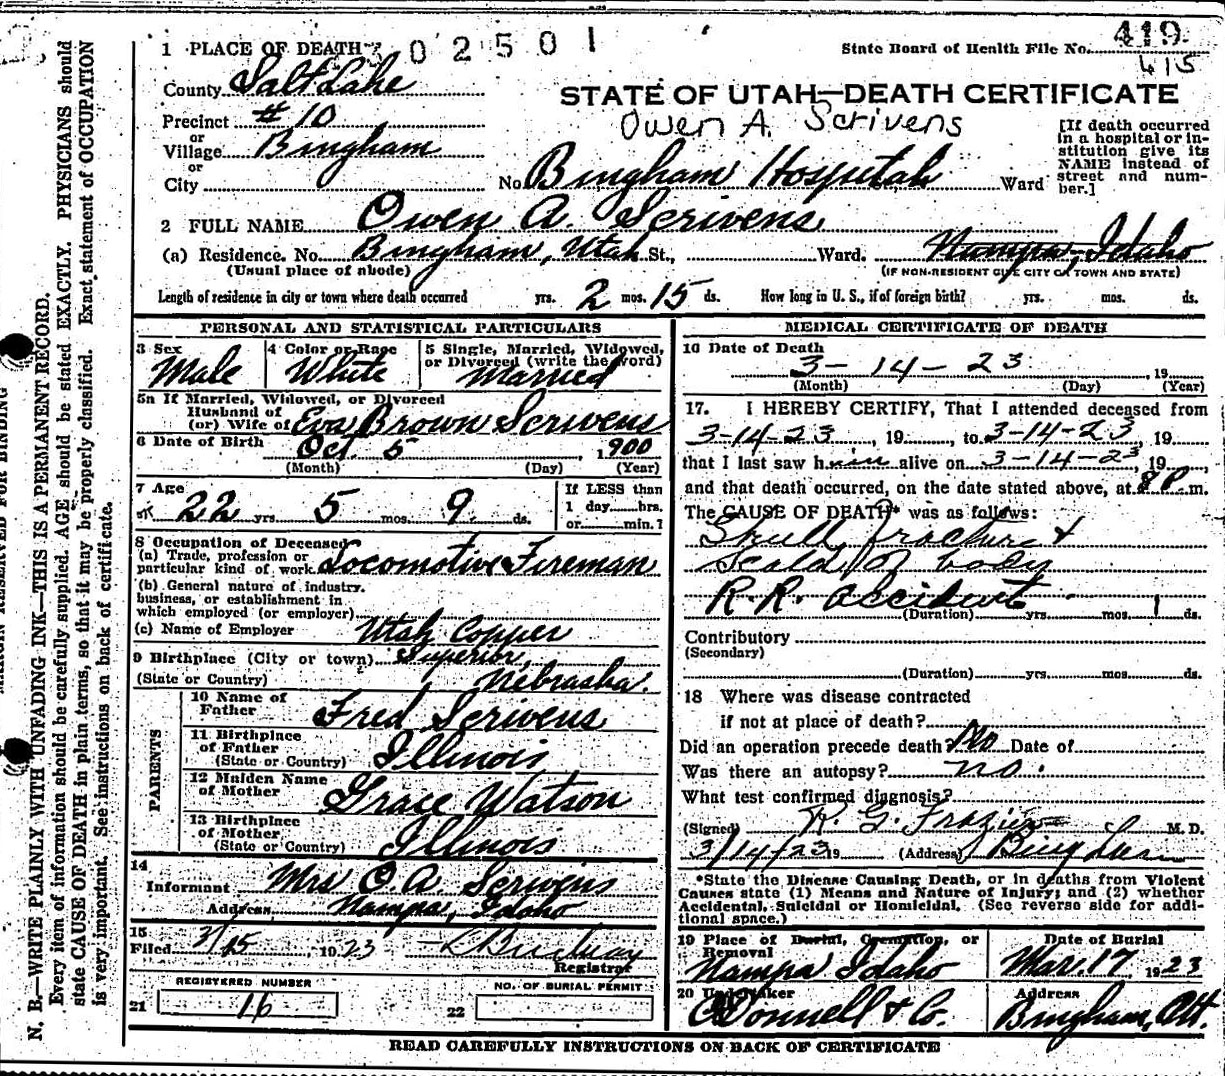 MARGIN RESERVED FOR BINDING
N. B.—WRITE PLAINLY WITH UNFADING INK—THIS IS A PERMANENT RECORD.
Every item of information should be carefully supplied. AGE should be stated EXACTLY. PHYSICIANS should
state CAUSE OF DEATH in plain terms, so that it may be properly classified. Exact statement of OCCUPATION
is very important. See instructions on back of certificate.
1 PLACE OF DEATH 02501 State Board of Health File No. 419
415
County Salt Lake
STATE OF UTAH—DEATH CERTIFICATE
Precinct #10 Owen A. Scrivens
or
Village Bingham
or
City No. Bingham Hospital Ward
[If death occurred
in a hospital or in-
stitution give its
NAME instead of
street and num-
ber.]
2 FULL NAME Owen A. Scrivens
(a) Residence. No. Bingham, Utah St., Ward. Nampa, Idaho
(Usual place of abode) (IF NON-RESIDENT GIVE CITY OR TOWN AND STATE)
Length of residence in city or town where death occurred yrs. 2 mos. 15 ds. How long in U. S., if of foreign birth? yrs. mos. ds.
PERSONAL AND STATISTICAL PARTICULARS
3 Sex 4 Color or Race 5 Single, Married, Widowed,
or Divorced (write the word)
Male White Married
5a If Married, Widowed, or Divorced
Husband of
(or) Wife of Eva Brown Scrivens
6 Date of Birth Oct. 5, 1900
(Month) (Day) (Year)
7 Age If LESS than
22 yrs. 5 mos. 9 ds. 1 day hrs.
or min.?
8 Occupation of Deceased
(a) Trade, profession or
particular kind of work Locomotive Fireman
(b) General nature of industry,
business, or establishment in
which employed (or employer)
(c) Name of Employer Utah Copper
9 Birthplace (City or town) Superior,
(State or Country) Nebraska.
PARENTS
10 Name of
Father Fred Scrivens
11 Birthplace
of Father
(State or Country) Illinois
12 Maiden Name
of Mother Grace Watson
13 Birthplace
of Mother
(State or Country) Illinois
14
Informant Mrs O. A. Scrivens
Address Nampa, Idaho
15
Filed 3/15 1923
Registrar
REGISTERED NUMBER NO. OF BURIAL PERMIT
21 16 22
MEDICAL CERTIFICATE OF DEATH
16 Date of Death
3-14-23, 19
(Month) (Day) (Year)
17. I HEREBY CERTIFY, That I attended deceased from
3-14-23, 19, to 3-14-23, 19
that I last saw him alive on 3-14-23, 19,
and that death occurred, on the date stated above, at 8 P. m.
The CAUSE OF DEATH* was as follows:
Skull fracture &
Scald of body
R.R. accident
(Duration) yrs. mos. 1 ds.
Contributory
(Secondary)
(Duration) yrs. mos. ds.
18 Where was disease contracted
if not at place of death?
Did an operation precede death? No Date of
Was there an autopsy? no.
What test confirmed diagnosis?
(Signed) R. G. Frazier M. D.
3/14/23 19 (Address) Bingham
*State the Disease Causing Death, or in deaths from Violent
Causes state (1) Means and Nature of Injury; and (2) whether
Accidental, Suicidal or Homicidal. (See reverse side for addi-
tional space.)
19 Place of Burial, Cremation, or
Removal Date of Burial
Nampa Idaho Mar. 17, 1923
20 Undertaker Address
O'Donnell & Co. Bingham, Ut.
READ CAREFULLY INSTRUCTIONS ON BACK OF CERTIFICATE